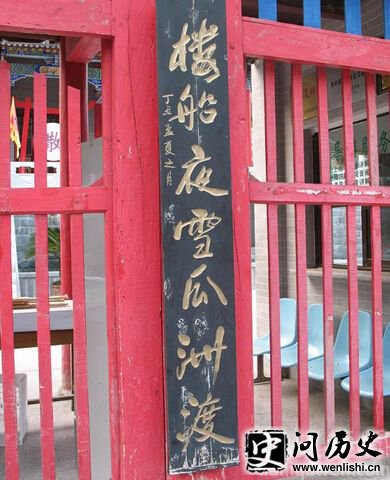 楼船夜雪瓜洲渡
丁丑孟夏之月
问历史
www.wenlishi.cn